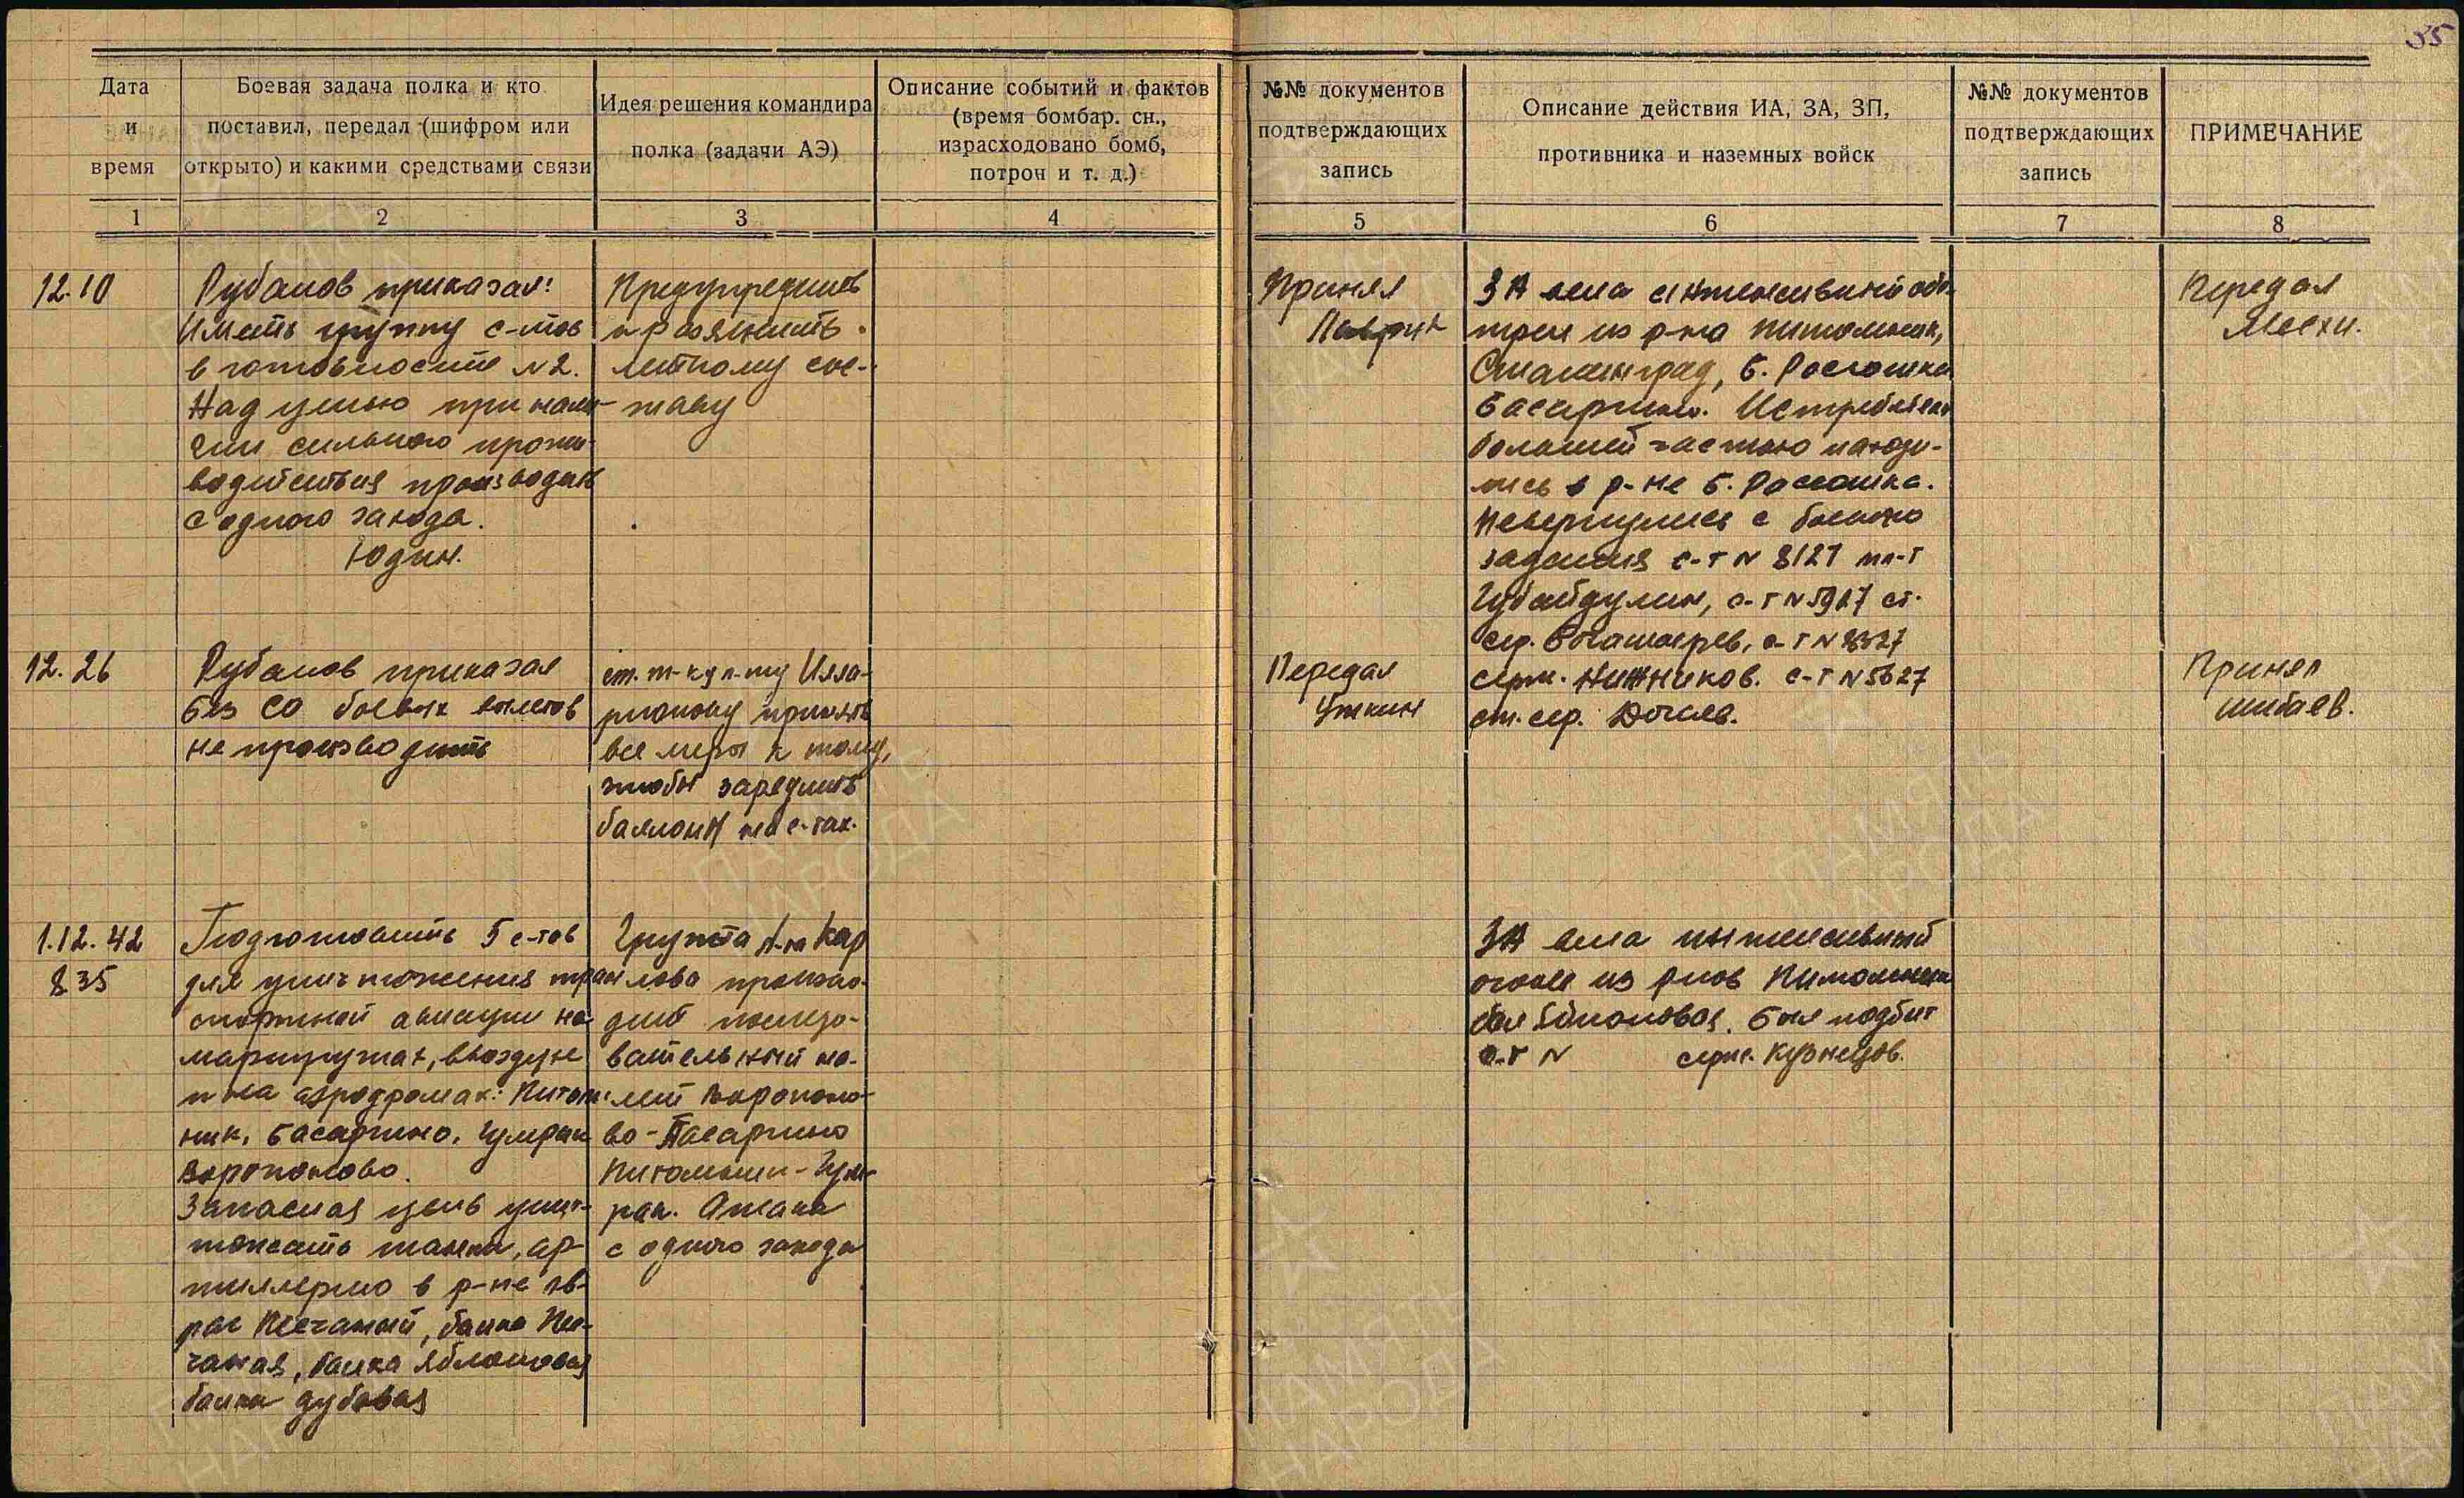 35
Дата
и
время
Боевая задача полка и кто
поставил, передал (шифром или
открыто) и какими средствами связи
Идея решения командира
полка (задачи АЭ)
Описание событий и фактов
(время бомбар. сн.,
израсходовано бомб,
потрон и т. д.)
№№ документов
подтверждающих
запись
Описание действия ИА, ЗА, ЗП,
противника и наземных войск
№№ документов
подтверждающих
запись
ПРИМЕЧАНИЕ
1
2
3
4
5
6
7
8
12.10
Рубанов приказал:
Иметь группу с-тов
в готовности №2.
Над целью при нали-
чии сильного проти-
водействия производить
с одного захода.
Юдин.
Предупредить
и разяснить
летному сос-
таву
Принял
ЗА вела интенсивный обс-
трел из р-на Питомник,
Сталинград, Б. Россошка
Басаргино. Истребители
большей частью находи-
лись в р-не Б. Россошка.
Невернулись с боевого
задания с-т № 8127 мл-т
Губайдулин, с-т № 5967 ст.
сер. с-т № 8327
серж. Нижников. с-т № 5627
ст. сер.
Передал
12.26
Рубанов приказал
без СО боевых вылетов
не производить
ст. т-ку л-ту Илла-
рионову принять
все меры к тому,
чтобы зарядить
баллоны на с-тах.
Передал
Уткин
Принял
Шибаев.
1.12.42
8 35
Подготовить 5 с-тов
для уничтожения тран
спортной авиации на
маршрутах, ввоздухе
и на аэродромах: Питом-
ник, Басаргино, Гумрак
Воропоново.
Запасная цель унич-
тожать танки, ар-
тиллерию в р-не ов-
раг Песчаный, балка Пес-
чаная, балка Яблоневая
балка Дубовая
Группа л-та Кар
пова произво-
дит последо-
вательный на-
лет Воропоно-
во-Басаргино
Питомник-Гум-
рак. Атака
с одного захода
ЗА вела интенсивный
огонь из рнов Питомник
Был подбит
с-т № серж. Кузнецов.
ПАМЯТЬ
НАРОДА